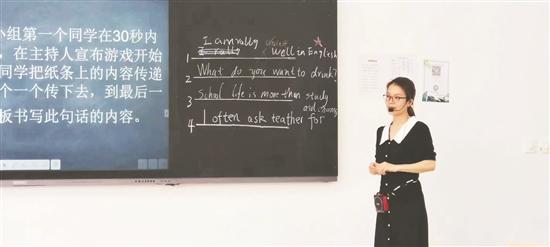 小组第一个同学在30秒内
，在主持人宣布游戏开始
同学把纸条上的内容传递
个一个传下去，到最后一
板书写此句话的内容。
I am really
1 well in English
2 What do you want to drink?
3 School life is more than study
and
4 I often ask teather for